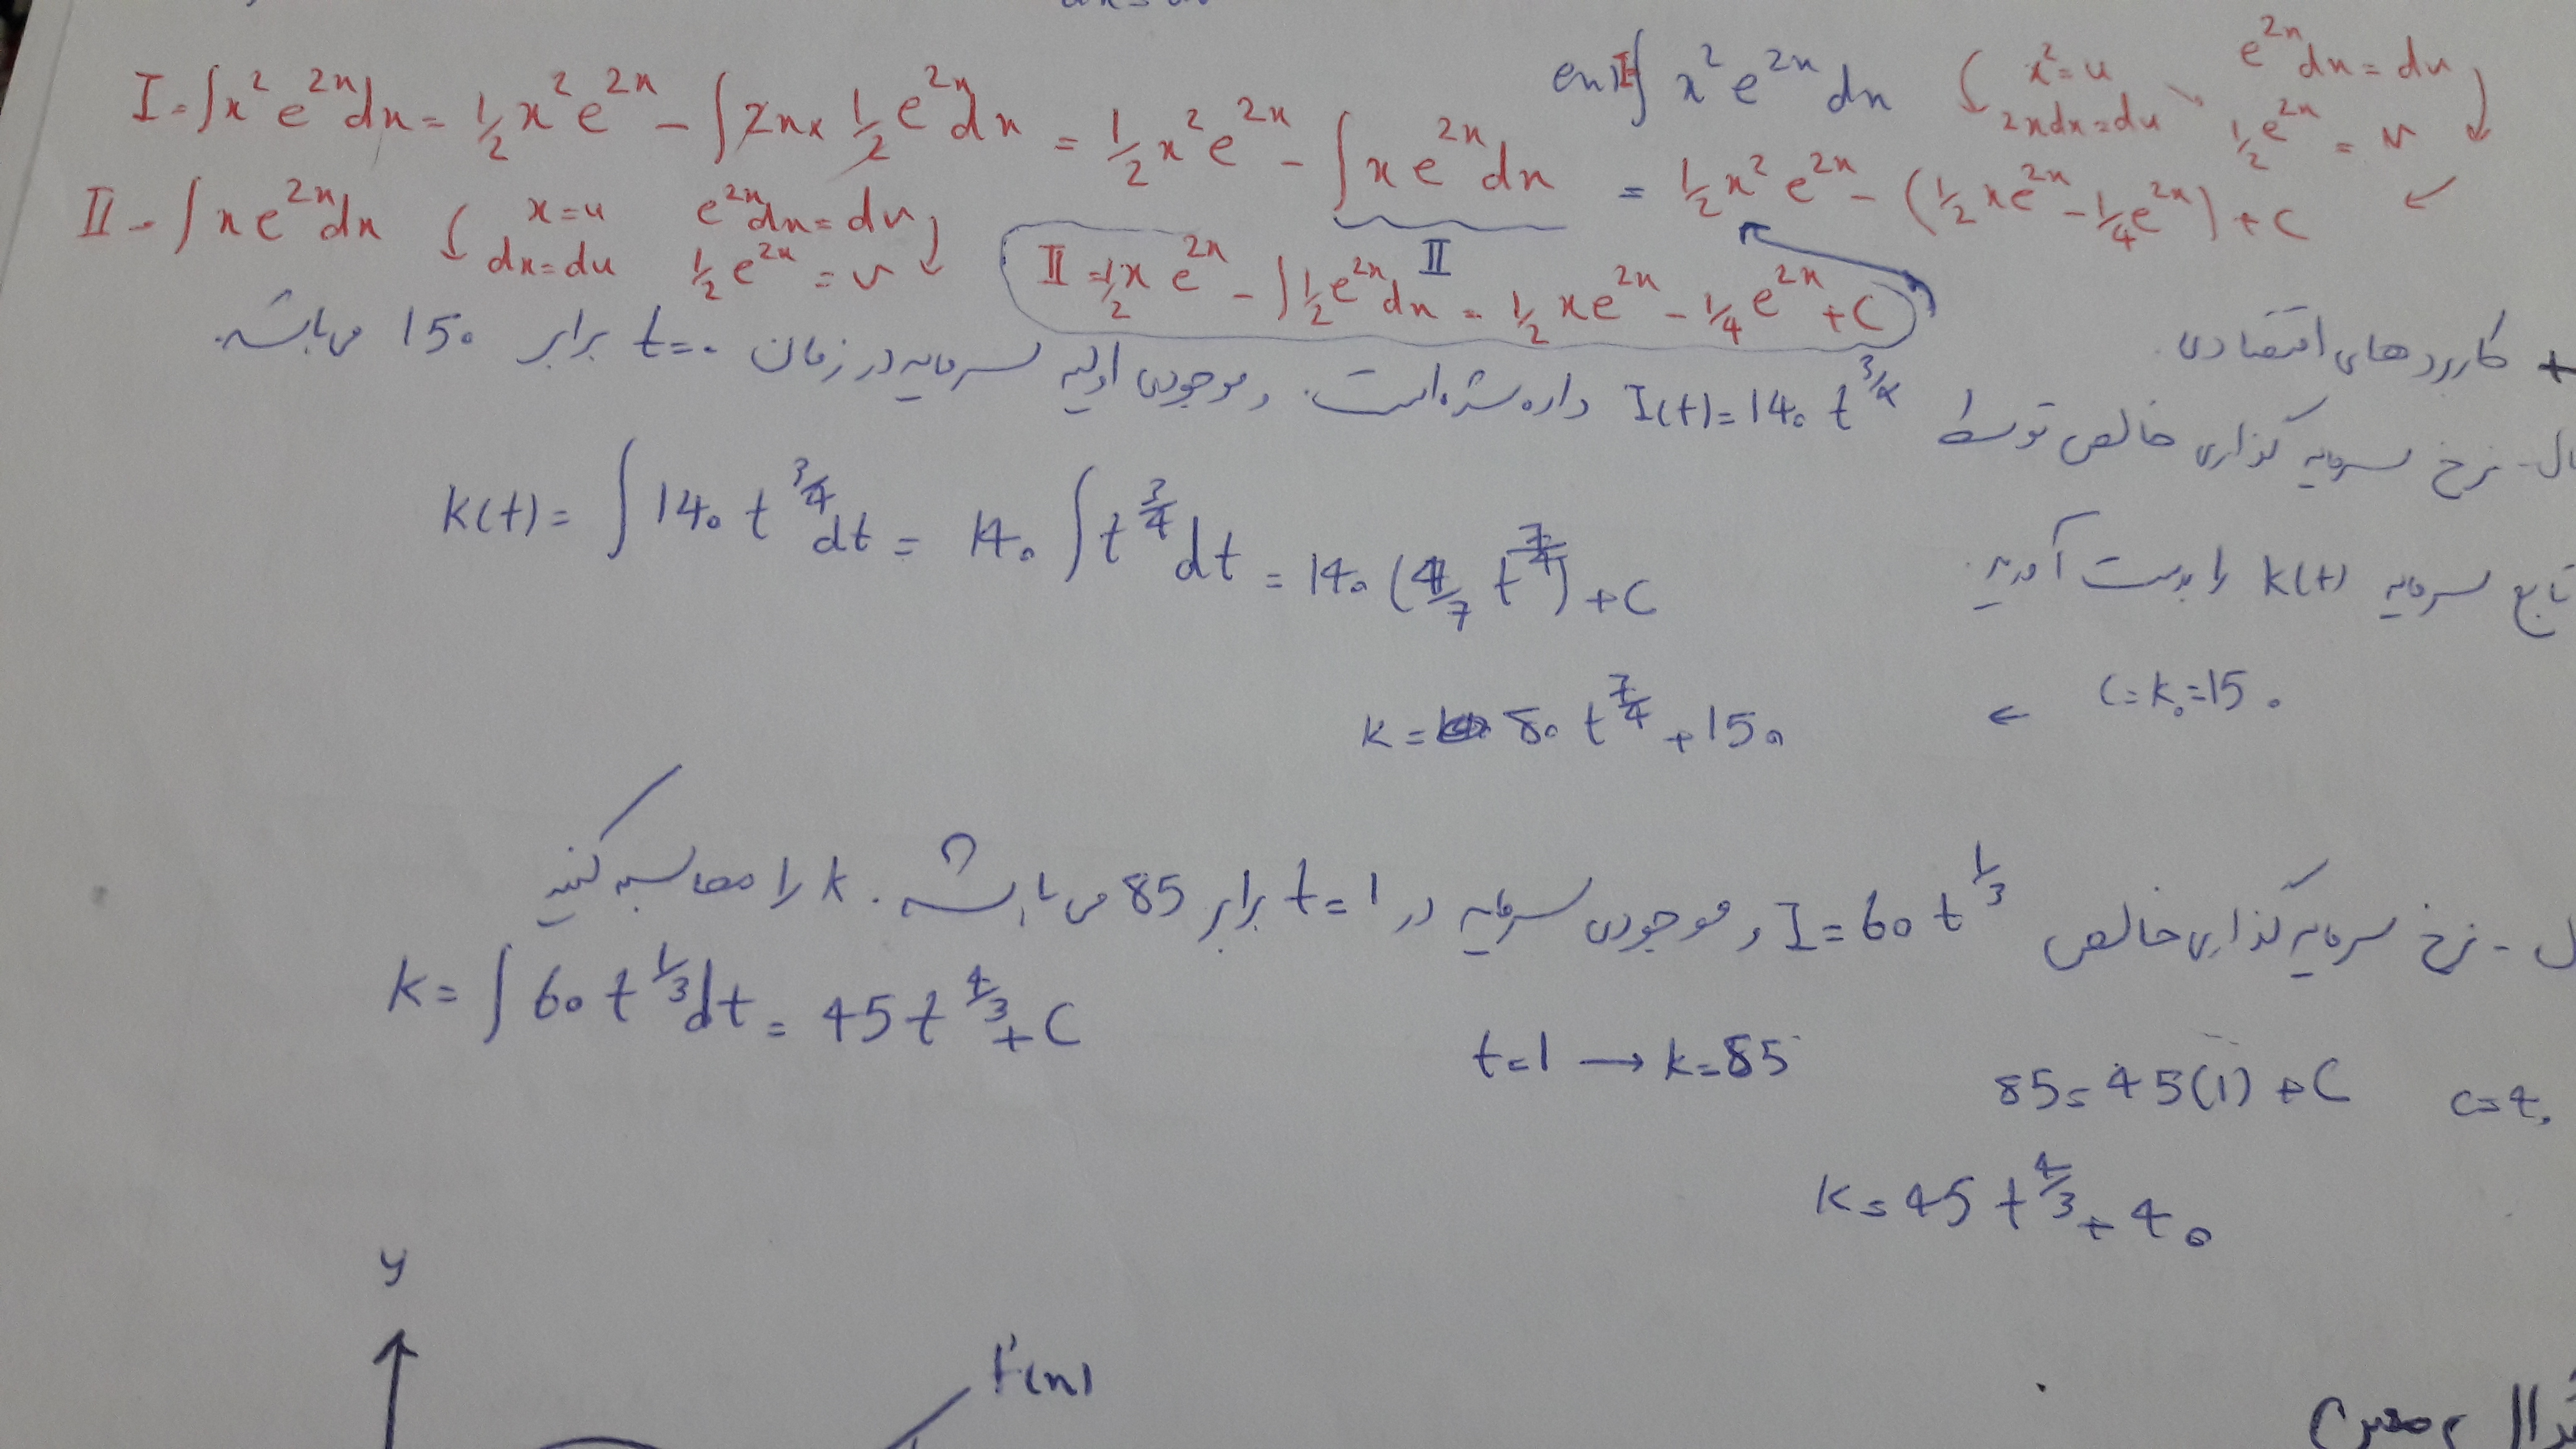 en I= ∫ x² e^{2x} dx x² = u 2x dx = du e^{2x} dx = dv ½ e^{2x} = v
I = ∫ x² e^{2x} dx = ½ x² e^{2x} - ∫ 2x × ½ e^{2x} dx = ½ x² e^{2x} - ∫ x e^{2x} dx = ½ x² e^{2x} - (½ x e^{2x} - ¼ e^{2x}) + C
II
II = ∫ x e^{2x} dx x = u dx = du e^{2x} dx = dv ½ e^{2x} = v
II = ½ x e^{2x} - ∫ ½ e^{2x} dx = ½ x e^{2x} - ¼ e^{2x} + C
+ کاربردهای اقتصادی
نرخ سرمایه گذاری خالص توسط I(t) = 140 t^{3/4} داده شده است. و موجودی اولیه سرمایه در زمان t=0 برابر 150 می باشد.
تابع سرمایه k(t) را بدست آورید.
k(t) = ∫ 140 t^{3/4} dt = 140 ∫ t^{3/4} dt = 140 (4/7 t^{7/4}) + C
C = k₀ = 150 ← k = 80 t^{7/4} + 150
- نرخ سرمایه گذاری خالص I = 60 t^{1/3} و موجودی سرمایه در t=1 برابر 85 می باشد. k را محاسبه کنید
k = ∫ 60 t^{1/3} dt = 45 t^{4/3} + C
t=1 → k=85 85 = 45(1) + C c=40
k = 45 t^{4/3} + 40
y
معین